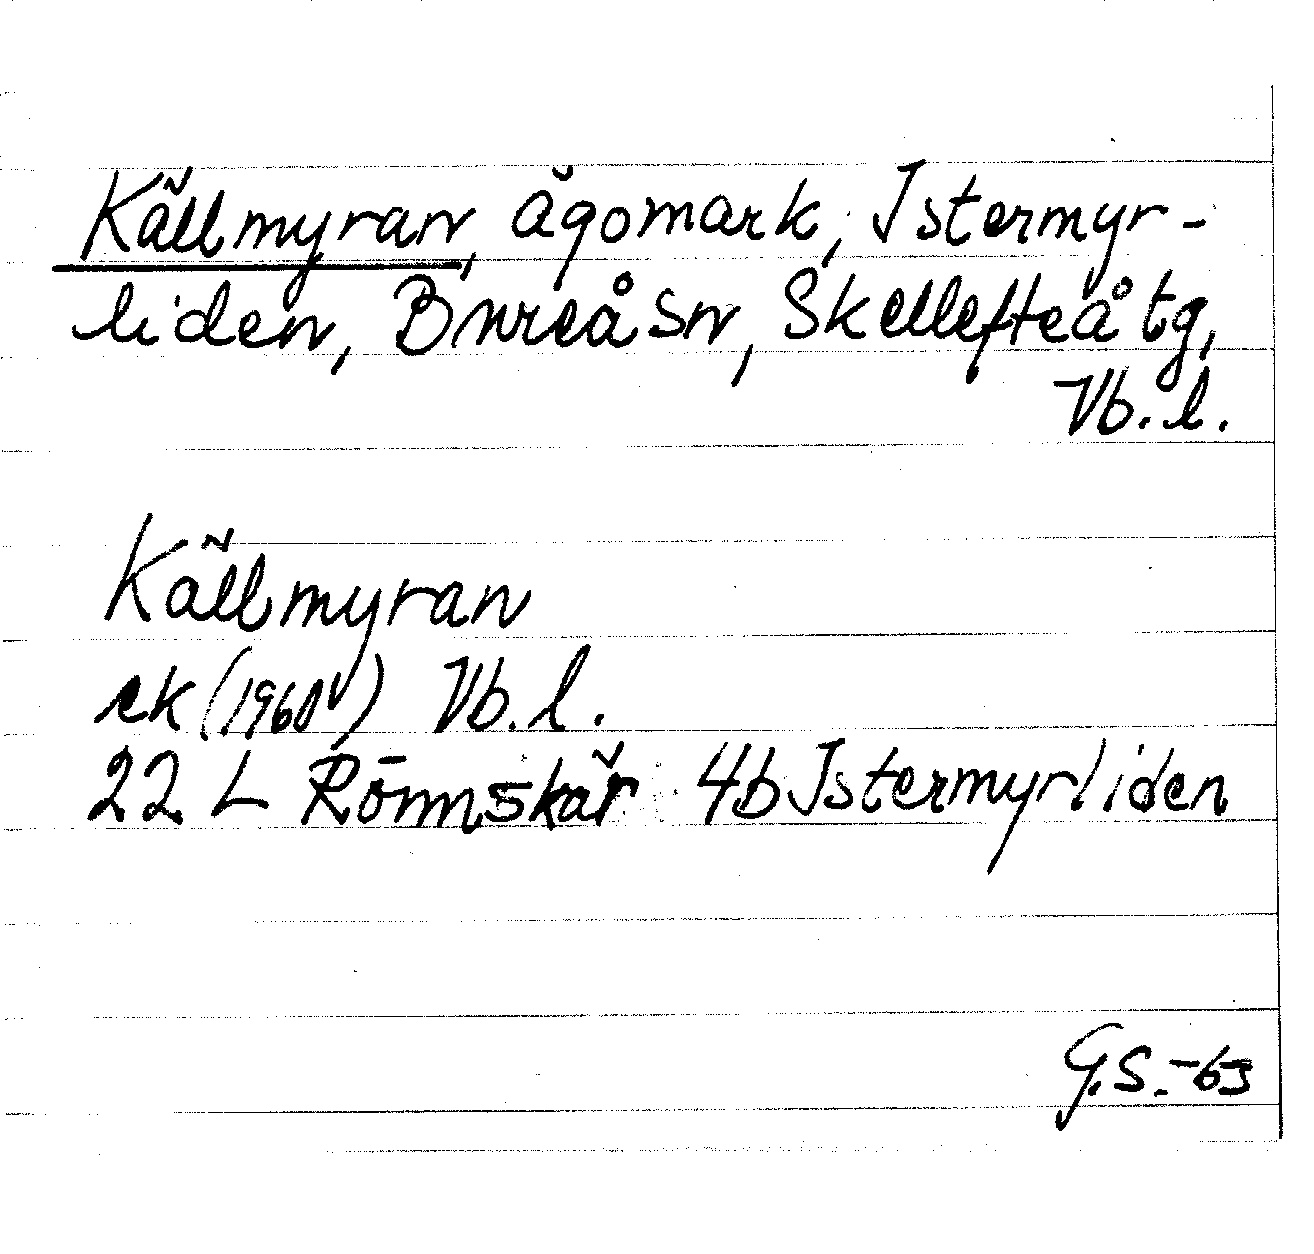 Källmyran, ägomark, Istermyr-
liden, Bureå sn, Skellefteå tg,
Vb. l.
Källmyran
ek (1960) Vb. l.
22 L Rönnskär 4b Istermyrliden
G.S.-63